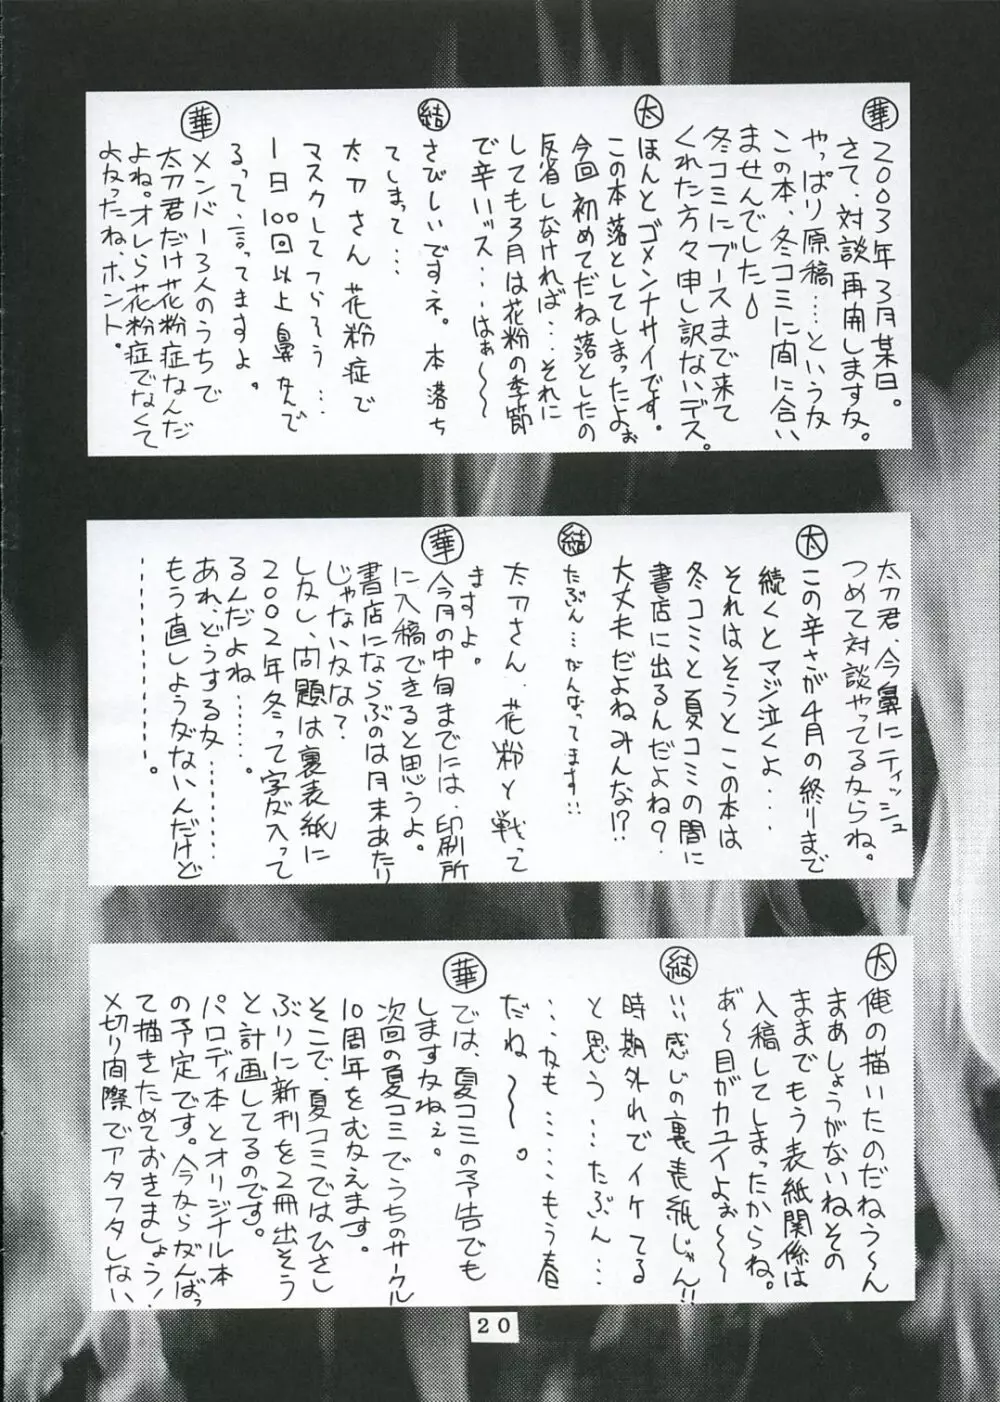 華
2003年3月某日。
さて、対談再開しますな。
やっぱり原稿…というか
この本、冬コミに間に合い
ませんでした
冬コミにブースまで来て
くれた方々申し訳ないデス。
太
ほんとゴメンナサイです。
この本落としてしまったよぉ
今回初めてだね落としたの
反省しなければ…それに
しても3月は花粉の季節
で辛いッス…はぁ～～
結
さびしいですネ。本落ち
てしまって…
太刀さん花粉症で
マスクしてつらそう…
1日100回以上鼻かんで
るって、言ってますよ。
華
メンバー3人のうちで
太刀君だけ花粉症なんだ
よね。オレら花粉症でなくて
よかったね、ホント。
太刀君、今鼻にティッシュ
つめて対談やってるからね。
太
この辛さが4月の終りまで
続くとマジ泣くよ…
それはそうとこの本は
冬コミと夏コミの間に
書店に出るんだよね？
大丈夫だよねみんな!?
結
たぶん…がんばってます!!
太刀さん、花粉と戦って
ますよ。
華
今月の中旬までには、印刷所
に入稿できると思うよ。
書店にならぶのは月末あたり
じゃないかな？
しかし、問題は裏表紙に
2002年冬って字が入って
るんだよね……。
あれ、どうするな………
もう直しようがないんだけど
……………。
太
俺の描いたのだねう～ん
まあしょうがないねその
ままでもう表紙関係は
入稿してしまったからね。
あ゛～目がカユイよぉ～～
結
いい感じの裏表紙じゃん!!
時期外れでイケてる
と思う…たぶん…
…かも……もう春
だね～～。
華
では、夏コミの予告でも
しますかねぇ。
次回の夏コミでうちのサークル
10周年をむかえます。
そこで、夏コミではひさし
ぶりに新刊を2冊出そう
と計画してるのです。
パロディ本とオリジナル本
の予定です。今からがんばっ
て描きためておきましょう!
〆切り間際でアタフタしない
20